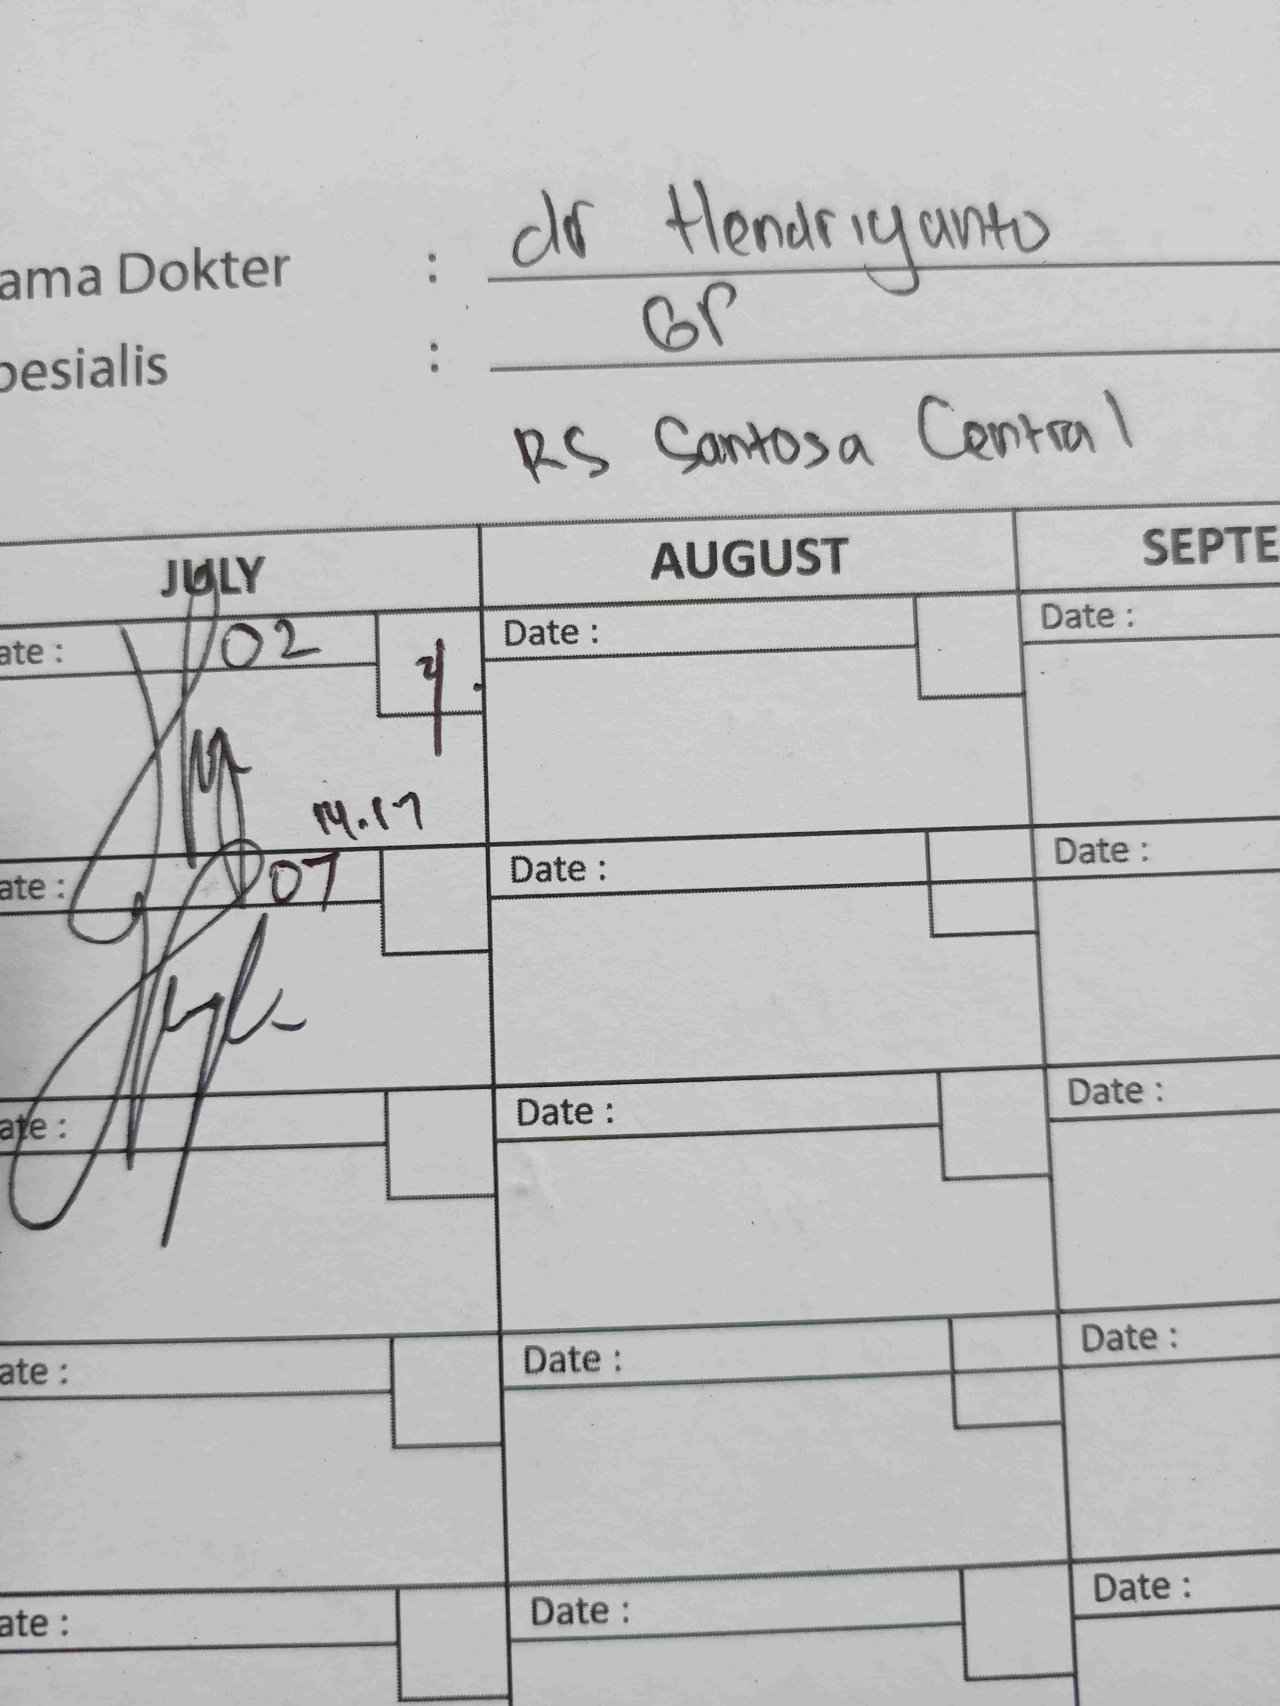 ama Dokter : dr Hendriyanto
pesialis : GP
RS Santosa Central
JULY AUGUST SEPTE
ate : 02 Date : Date :
14.17
ate : 07 Date : Date :
ate : Date : Date :
ate : Date : Date :
ate : Date : Date :